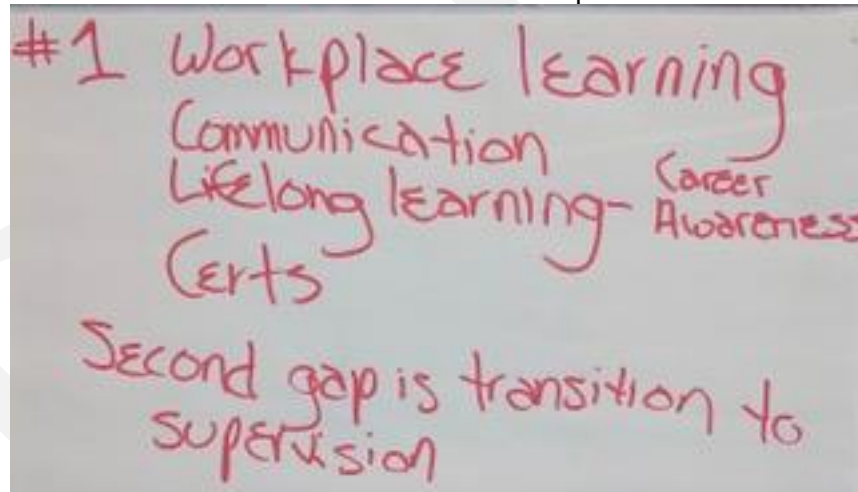 #1 Workplace learning
Communication
Lifelong learning- Career
Awareness
Certs
Second gap is transition to
supervision